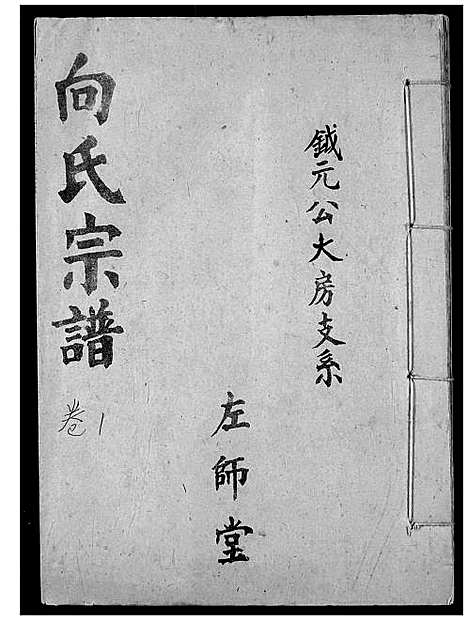 鉞元公大房支系
左師堂
向氏宗譜
卷1